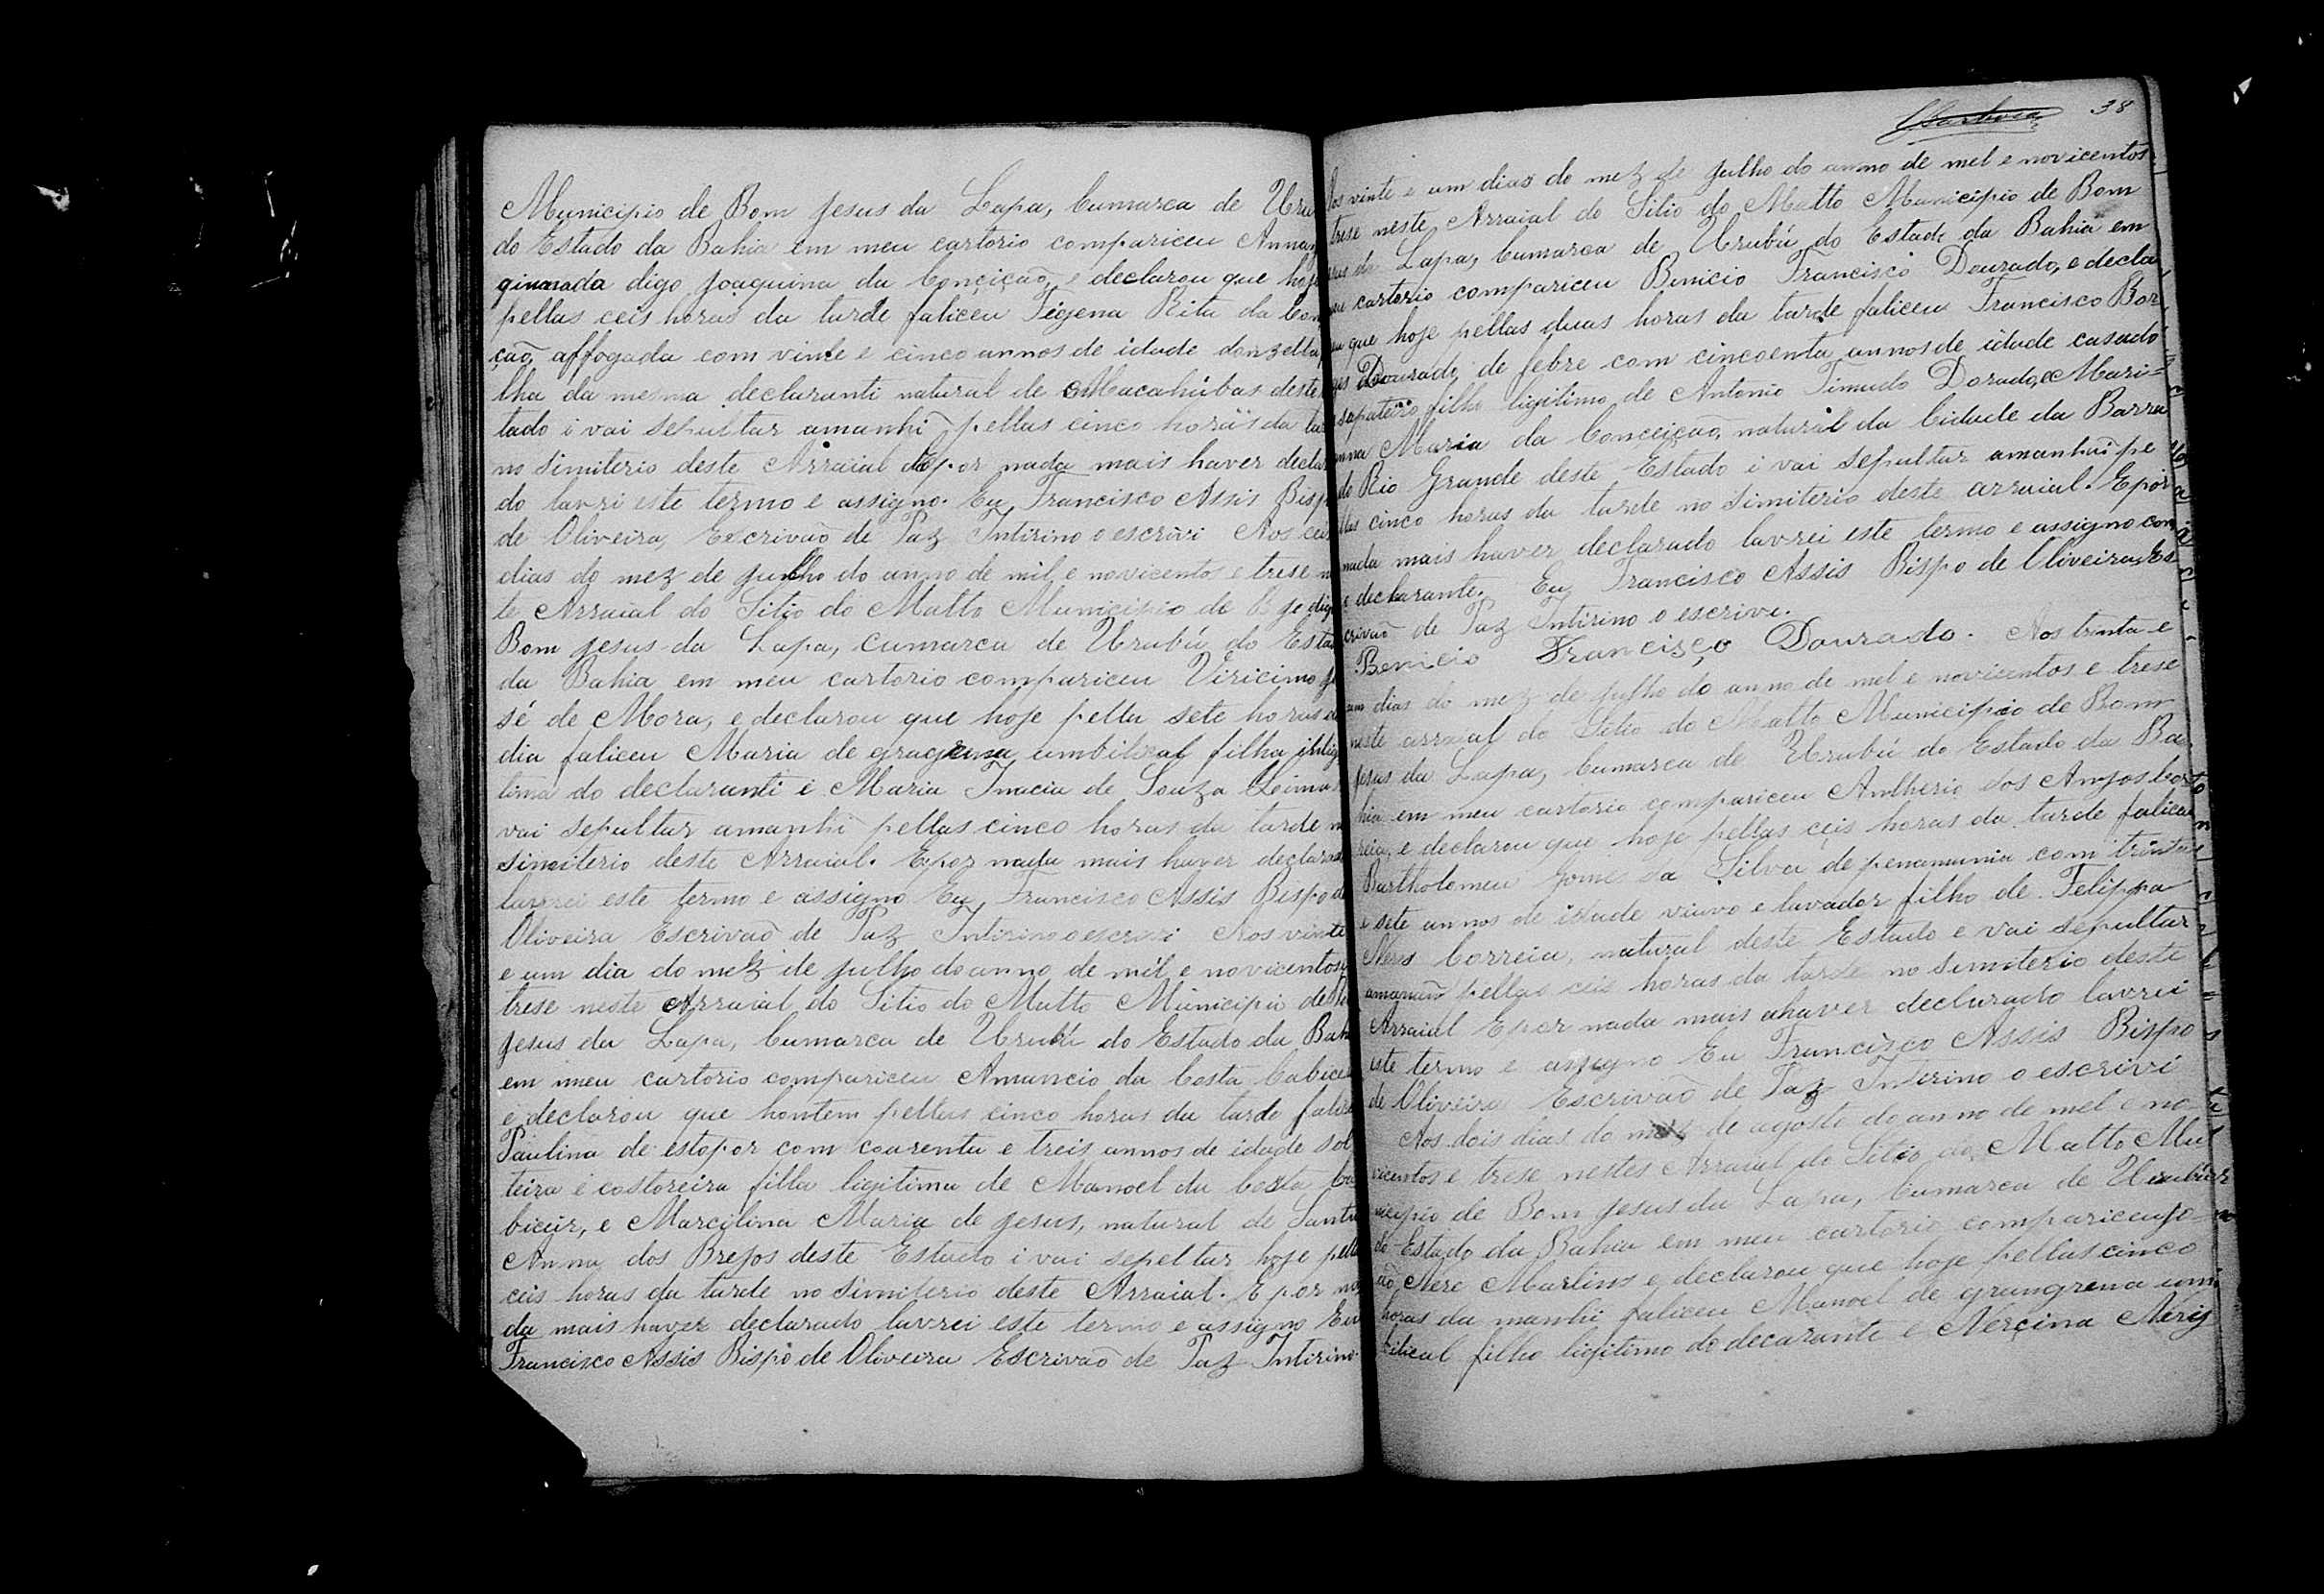 Municipio de Bom Jesus da Lapa, Cumarca de Uru
do Estado da Bahia em meu cartorio compariceu Anna
digo Joaquina da Conçição, e declarou que hoje
pellas ceis horas da tarde faliceu Rita da Con
ção, affogada com vinte e cinco annos de idade donzella
lha da mesma declaranti natural de Macahúbas deste
tado i vai sepultar amanhi pellas cinco horas da ta
no simiterio deste Arraial E por nada mais haver declara
do lavri este termo e assigno. Eu Francisco Assis Bisp
de Oliveira, Escrivão de Paz Intirino o escrivi Aos
dias do mez de Julho do anno de mil e novicento e trese n
te Arraial do Sitio do Matto Municipio de B je digo
Bom Jesus da Lapa, Cumarca de Urubú do Esta
da Bahia em meu cartorio compariceu Viricimo Jo
sé de Mora, e declarou que hoje pella sete horas do
dia faliceu Maria de umbilical filha
tima do declaranti e Maria Inacia de Souza
vai sepultar amanhi pellas cinco horas da tarde n
simiterio deste Arraial. E por nada mais haver declarad
lavrei este termo e assigno Eu Francisco Assis Bispo d
Oliveira Escrivão de Paz Intirino o escrivi Aos vinte
e um dia do mez de Julho do anno de mil e novicentos
trese neste Arraial do Sitio do Matto Municipio de
Jesus da Lapa, Cumarca de Urubú do Estado da Bah
em meu cartorio compariceu Amancio da Costa
e declarou que hontem pellas cinco horas da tarde falic
Paulina de estopor com coarenta e treis annos de idade sol
teira e costoreira filla ligitima de Manoel da Costa
e Marcilina Maria de Jesus, natural de Santa
Anna dos Brejos deste Estado i vai sepeltar hoje pella
ceis horas da tarde no simiterio deste Arraial. E por na
da mais haver declarado lavrei este termo e assigno Eu
Francisco Assis Bispo de Oliveira Escrivão de Paz Intirino
38
Aos vinte e um dias do mez de Julho do anno de mel e novicentos
trese neste Arraial do Sitio do Matto Municipio de Bom
da Lapa, Cumarca de Urubú do Estado da Bahia em
cartorio compariceu Binicio Francisco Dourado, e decla
que hoje pellas duas horas da tarde faliceu Francisco Bor
ges Dourado, de febre com cincoenta annos de idade casado
sapateiro filho ligitimo de Antonio Dorado, e Mari=
anna Maria da Conceição, natural da Cidade da Barra
do Rio Grande deste Estado i vai sepultar amanhã pe
llas cinco horas da tarde no simiterio deste arraial. E por
nada mais haver declarado lavrei este termo e assigno com
o declarante. Eu Francisco Assis Bispo de Oliveira Es-
crivão de Paz Intirino o escrivi.
Benicio Francisco Dourado. Aos trinta e
um dias do mez de Julho do anno de mel e novicentos e trese
neste arraial do Sitio do Matto Municipio de Bom
Jesus da Lapa, Cumarca de Urubú do Estado da Ba
hia em meu cartorio compariceu dos Anjos Cor
reia, e declarou que hoje pellas ceis horas da tarde faliceu
Bartholomeu Gomes da Silva de penamunia com trinta
e sete annos de idade viuvo e lavador filho de Felippa
Neres Correia, natural deste Estado e vai sepultar
amanhã pellas ceis horas da tarde no simiterio deste
Arraial E por nada mais ahaver declarado lavrei
este termo e assigno Eu Francisco Assis Bispo
de Oliveira Escrivão de Paz Intirino o escrivi
Aos dois dias do mez de agosto do anno de mel e no
vicentos e trese nestes Arraial do Sitio do Matto Mu
nicipio de Bom Jesus da Lapa, Cumarca de Urubú
do Estado da Bahia em meu cartorio compariceu Jo
ão Nere Martins e declarou que hoje pellas cinco
horas da manhi faliceu Manoel de grangrena um
bilical filho ligitimo do decarante e Nercina Neris